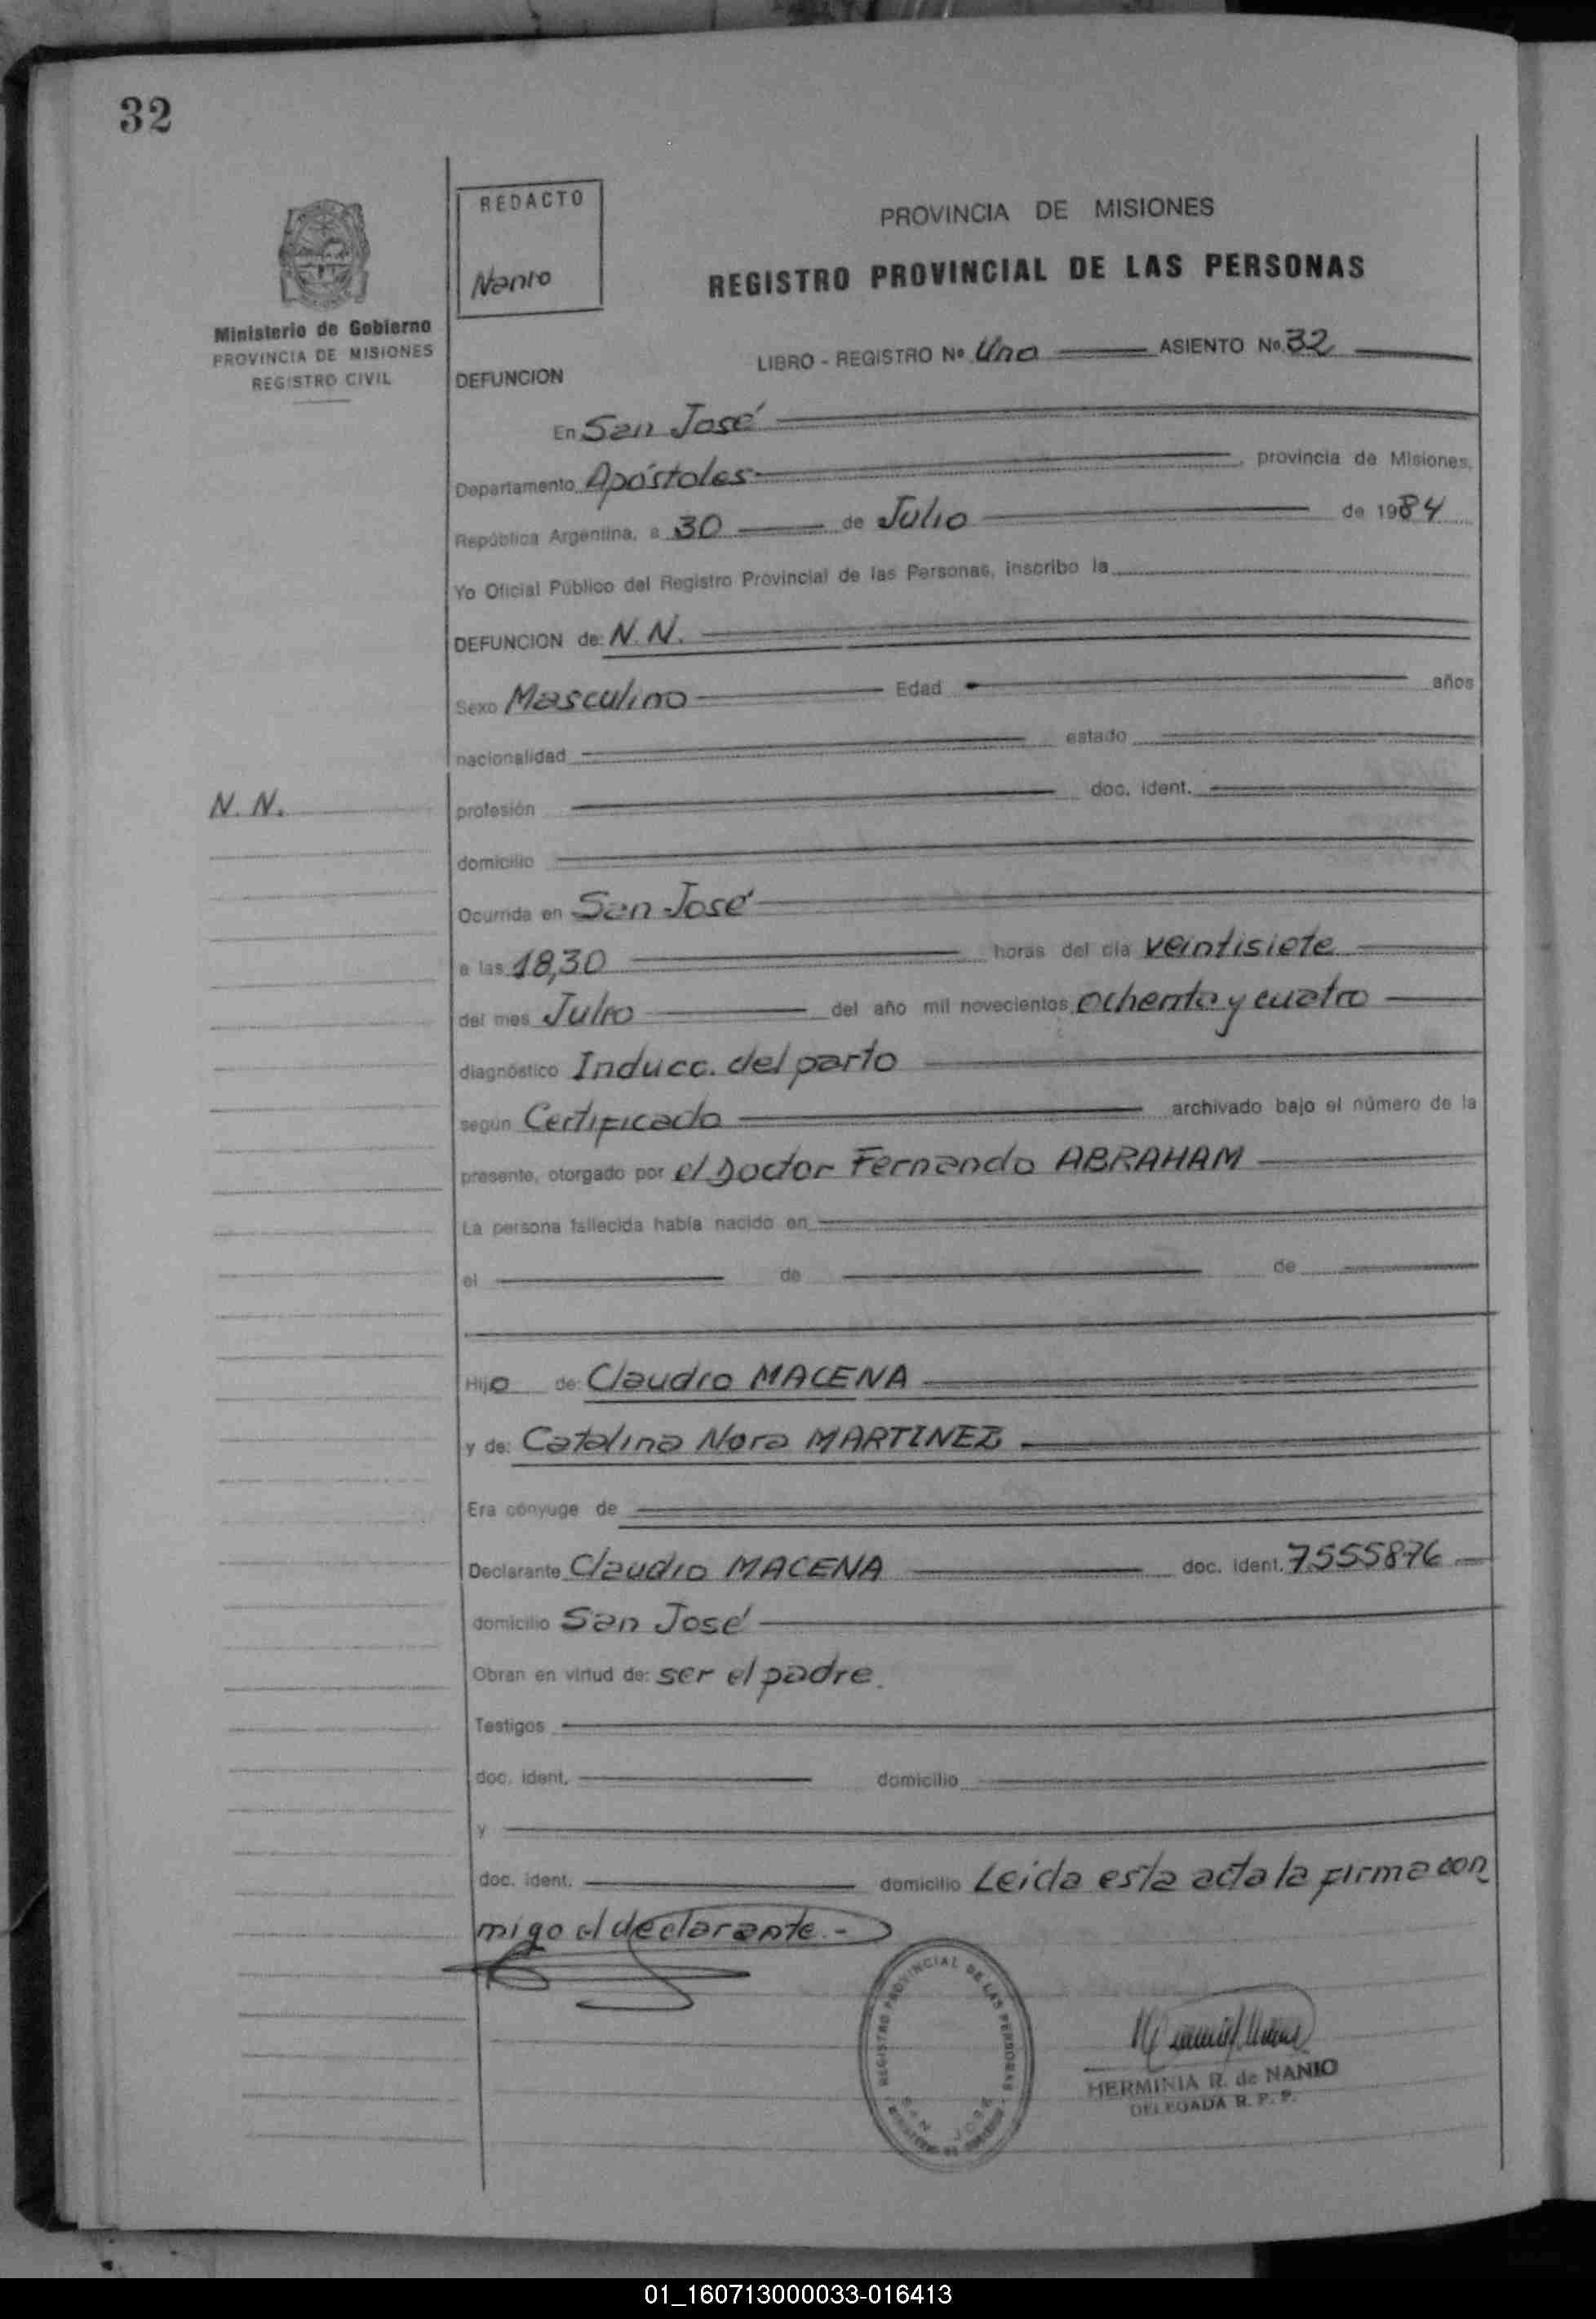 32
REDACTO
Nanio
Ministerio de Gobierno
PROVINCIA DE MISIONES
REGISTRO CIVIL
PROVINCIA DE MISIONES
REGISTRO PROVINCIAL DE LAS PERSONAS
LIBRO - REGISTRO Nº Uno ASIENTO Nº 32
DEFUNCION
En San José
Departamento Apóstoles, provincia de Misiones,
República Argentina, a 30 de Julio de 1984
Yo Oficial Público del Registro Provincial de las Personas, inscribo la
DEFUNCION de: N.N.
Sexo Masculino Edad años
nacionalidad estado
N.N.
profesión doc. ident.
domicilio
Ocurrida en San José
a las 18,30 horas del día veintisiete
del mes Julio del año mil novecientos ochenta y cuatro
diagnóstico Inducc. del parto
según Certificado archivado bajo el número de la
presente, otorgado por el Doctor Fernando ABRAHAM
La persona fallecida había nacido en
el de de
Hijo de: Claudio MACENA
y de: Catalina Nora MARTINEZ
Era cónyuge de
Declarante Claudio MACENA doc. ident. 7555876
domicilio San José
Obran en virtud de: ser el padre.
Testigos
doc. ident. domicilio
y
doc. ident. domicilio Leida esta acta la firma con
migo el declarante.-
REGISTRO PROVINCIAL DE LAS PERSONAS
SAN JOSE
HERMINIA R. de NANIO
DELEGADA R. P. P.
01_160713000033-016413